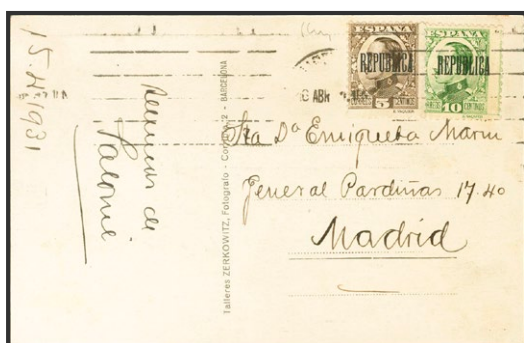 15. IV. 1931
Recuerdos de
Talleres ZERKOWITZ, Fotografo - BARCELONA
ESPAÑA
REPUBLICA
5
ESPAÑA
REPUBLICA
10
ABR
Sta Dª Enriqueta Marin
General Pardiñas 17.40
Madrid